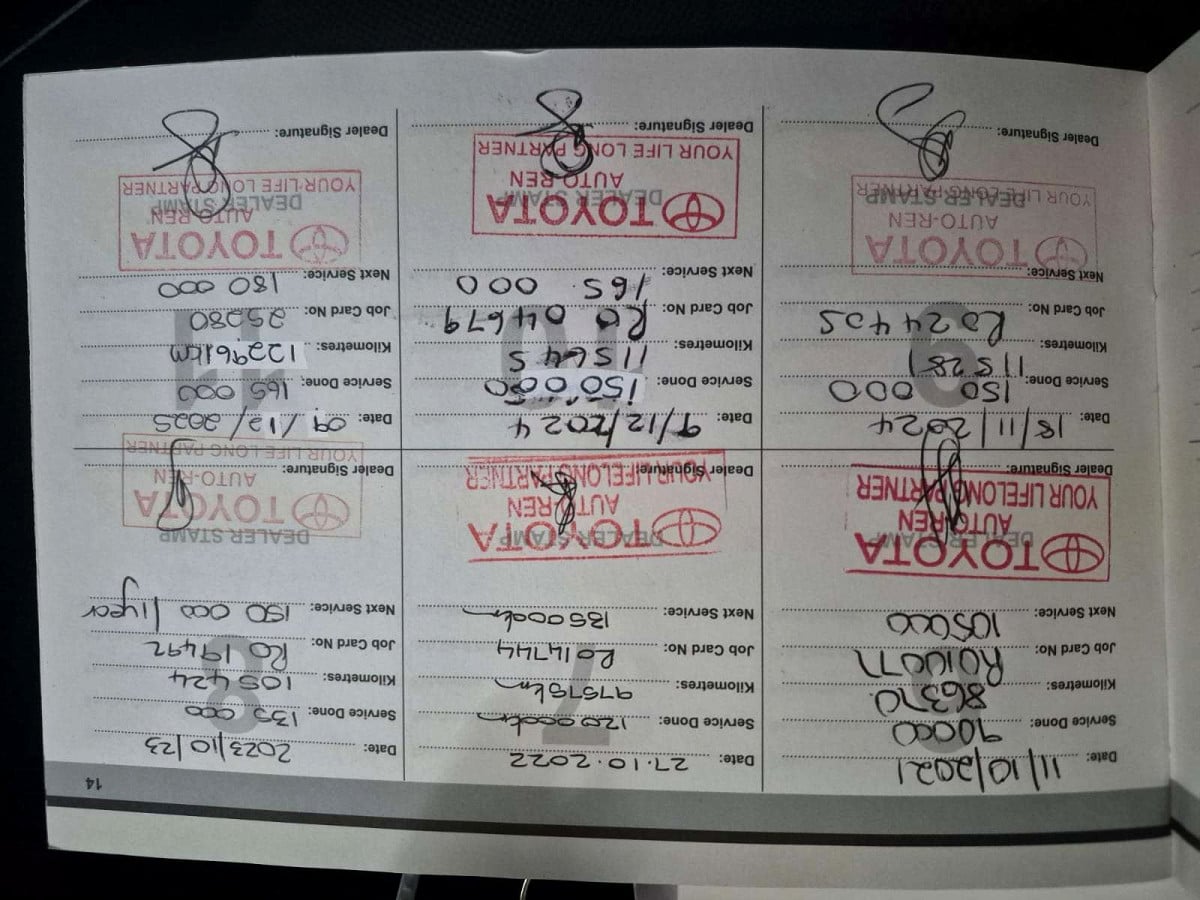 14
Date: 11/10/2021
Service Done: 90000
Kilometres: 86370
Job Card No:
Next Service: 105000
DEALER STAMP
TOYOTA
AUTO-REN
YOUR LIFELONG PARTNER
Dealer Signature:
7
Date: 27.10.2022
Service Done: 120000km
Kilometres: 97575km
Job Card No: R014744
Next Service: 135000km
DEALER STAMP
TOYOTA
AUTO REN
YOUR LIFELONG PARTNER
Dealer Signature:
8
Date: 2023/10/23
Service Done: 135 000
Kilometres: 105424
Job Card No: RO 19492
Next Service: 150 000 / 1year
DEALER STAMP
TOYOTA
AUTO-REN
YOUR LIFE LONG PARTNER
Dealer Signature:
9
Date: 18/11/2024
Service Done: 150 000
Kilometres: 115281
Job Card No: Ro 24425
Next Service:
DEALER STAMP
TOYOTA
AUTO-REN
YOUR LIFE LONG PARTNER
Dealer Signature:
10
Date: 9/12/2024
Service Done: 150 000
Kilometres: 115645
Job Card No: Ro 04679
Next Service: 165 000
DEALER STAMP
TOYOTA
AUTO-REN
YOUR LIFE LONG PARTNER
Dealer Signature:
11
Date: 09/12/2025
Service Done: 165 000
Kilometres: 122961km
Job Card No: 25280
Next Service: 180 000
DEALER STAMP
TOYOTA
AUTO-REN
YOUR LIFE LONG PARTNER
Dealer Signature: